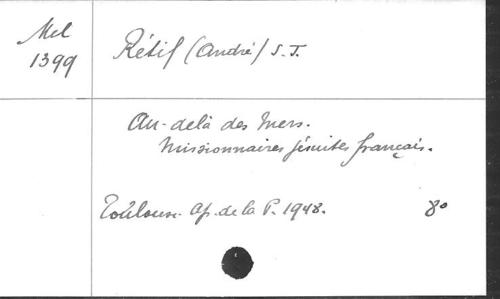 Mel
1399
Rétif (André) S.J.
Au-delà des Mers.
Missionnaires jésuites français.
Toulouse. Ap. de la P. 1948. 8°